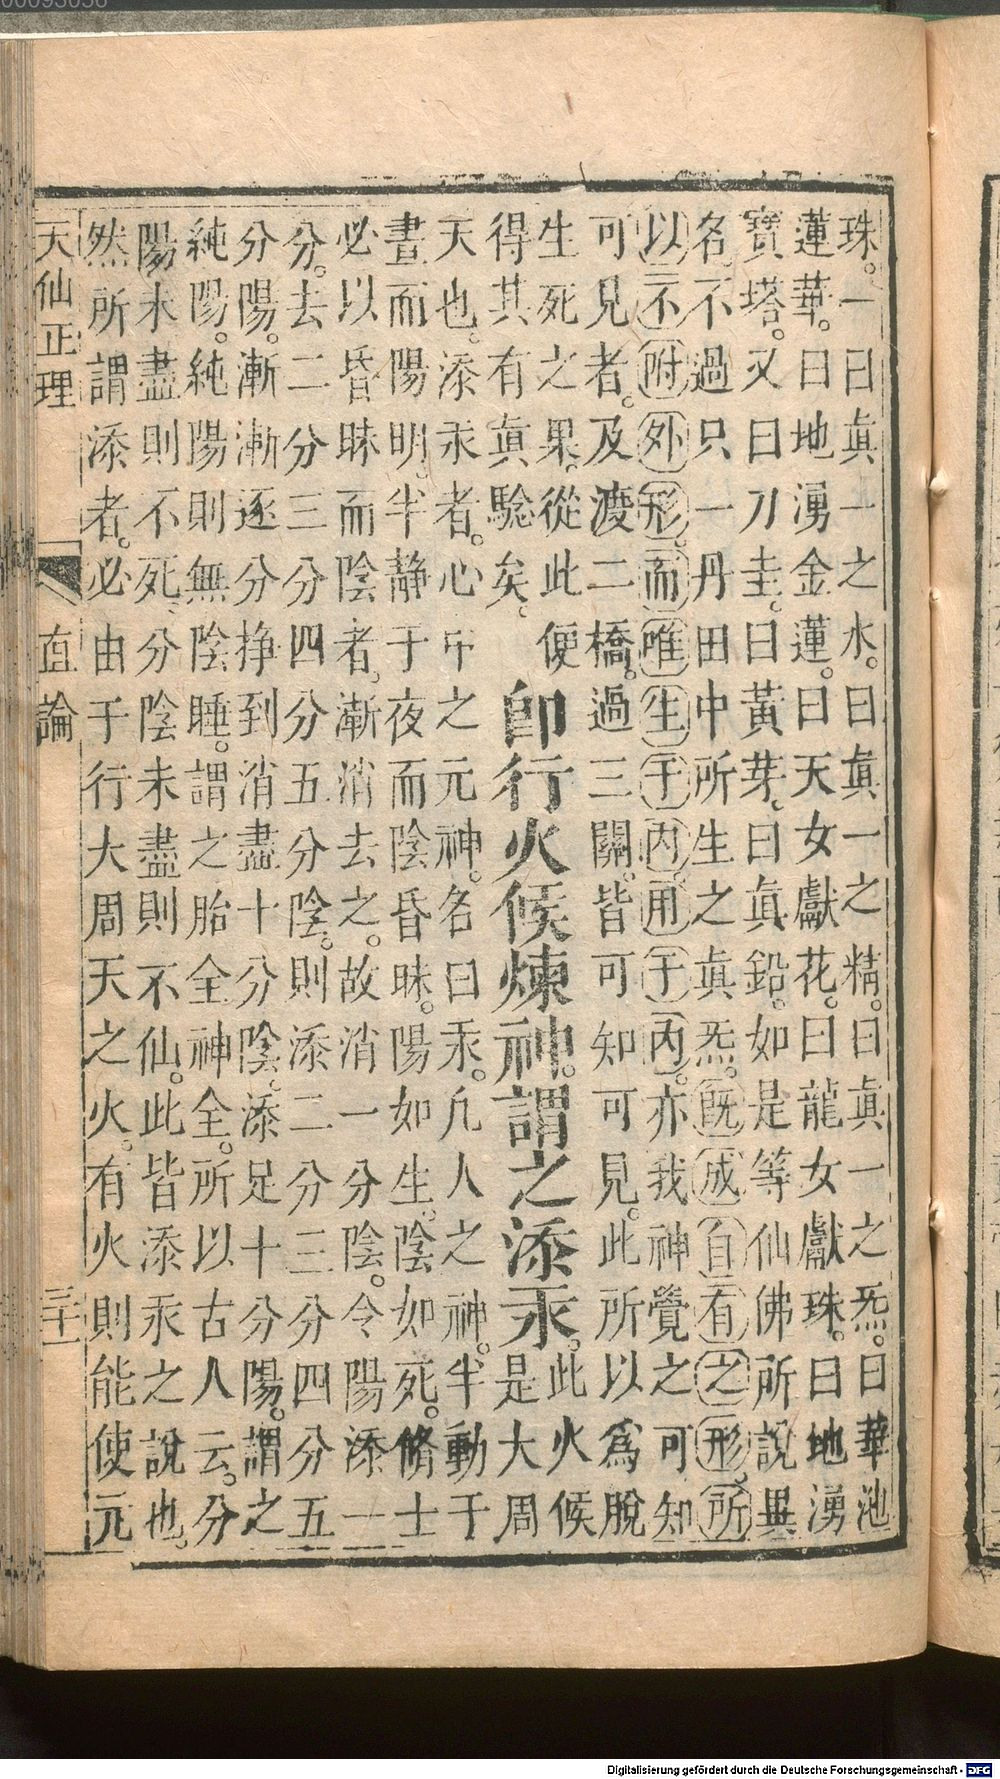 珠。一曰眞一之水。曰眞一之精。曰眞一之炁。曰華池
蓮華。曰地湧金蓮。曰天女獻花。曰龍女獻珠。曰地湧
寶塔。又曰刀圭。曰黃芽。曰眞鉛。如是等仙佛所說異
名。不過只一丹田中所生之眞炁。旣成自有之形。所
以不附外形。而唯生于內。用于內。亦我神覺之可知
可見者。及渡二橋。過三關。皆可知可見。此所以爲脫
生死之果。從此便
得其有眞騐矣。
卽行火候煉神。謂之添汞。
此火候
是大周
天也。添汞者。心中之元神。名曰汞。凡人之神。半動于
晝而陽明。半靜于夜而陰昏昧。陽如生。陰如死。脩士
必以昏昧而陰者。漸消去之。故消一分陰。令陽添一
分。去二分三分四分五分陰。則添二分三分四分五
分陽。漸漸逐分掙到消盡十分陰。添足十分陽。謂之
純陽。純陽則無陰睡。謂之胎全神全。所以古人云。分
陽未盡則不死。分陰未盡則不仙。此皆添汞之說也。
然所謂添者。必由于行大周天之火。有火則能使元
天仙正理 直論 三十一
Digitalisierung gefördert durch die Deutsche Forschungsgemeinschaft - DFG